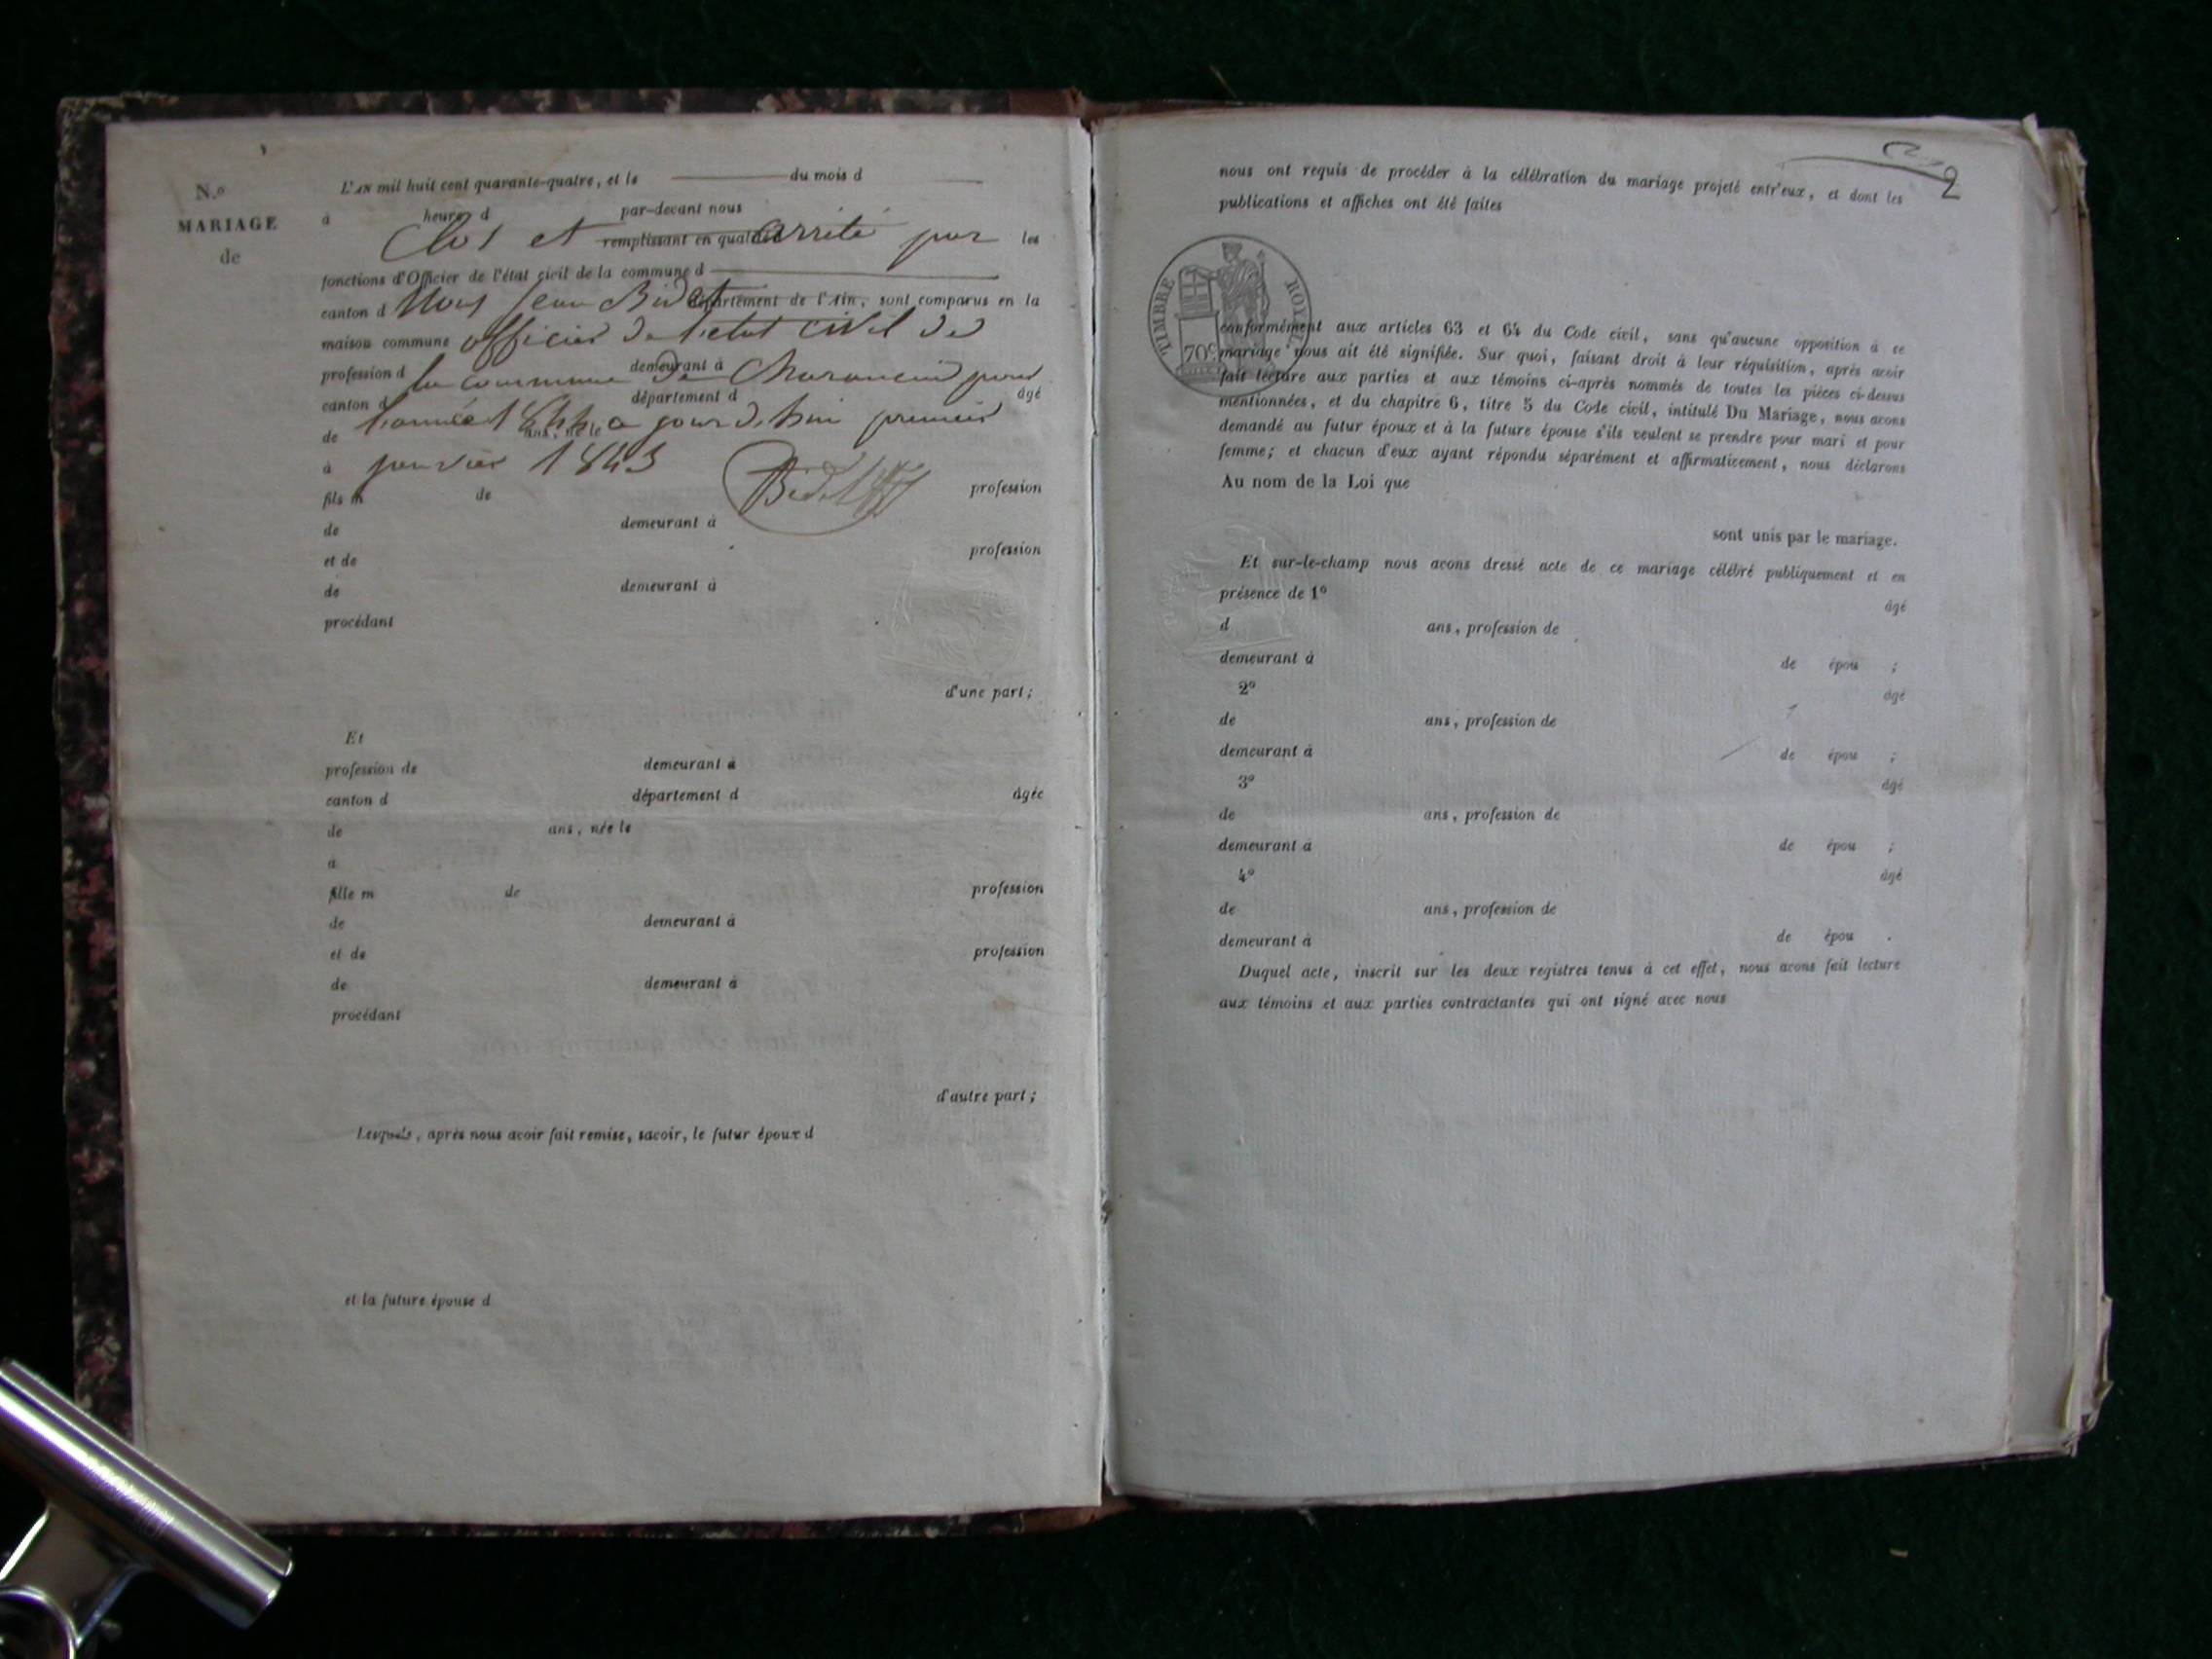 N.o
MARIAGE
de
L'AN mil huit cent quarante-quatre, et le du mois d
à heure d par-devant nous
Clos et arrêté par
remplissant en qualité les
fonctions d'Officier de l'état civil de la commune d
Nous Jean Bidet
canton d département de l'Ain, sont comparus en la
officier de l'etat civil de
maison commune
profession d demeurant à
la commune de Charancin pour
canton d département d âgé
l'année 1844 a jourd'hui premier
de ans, né le
à janvier 1845 Bidet
fils m de profession
de demeurant à
et de profession
de demeurant à
procédant
d'une part;
Et
profession de demeurant à
canton d département d âgée
de ans, née le
à
fille m de profession
de demeurant à
et de profession
de demeurant à
procédant
d'autre part;
Lesquels, après nous avoir fait remise, savoir, le futur époux d
et la future épouse d
2
nous ont requis de procéder à la célébration du mariage projeté entr'eux, et dont les
publications et affiches ont été faites
TIMBRE ROYAL.
70c
conformément aux articles 63 et 64 du Code civil, sans qu'aucune opposition à ce
mariage nous ait été signifiée. Sur quoi, faisant droit à leur réquisition, après avoir
fait lecture aux parties et aux témoins ci-après nommés de toutes les pièces ci-dessus
mentionnées, et du chapitre 6, titre 5 du Code civil, intitulé Du Mariage, nous avons
demandé au futur époux et à la future épouse s'ils veulent se prendre pour mari et pour
femme; et chacun d'eux ayant répondu séparément et affirmativement, nous déclarons
Au nom de la Loi que
sont unis par le mariage.
Et sur-le-champ nous avons dressé acte de ce mariage célébré publiquement et en
présence de 1o âgé
d ans, profession de
demeurant à de épou ;
2o âgé
de ans, profession de
demeurant à de épou ;
3o âgé
de ans, profession de
demeurant à de épou ;
4o âgé
de ans, profession de
demeurant à de épou .
Duquel acte, inscrit sur les deux registres tenus à cet effet, nous avons fait lecture
aux témoins et aux parties contractantes qui ont signé avec nous